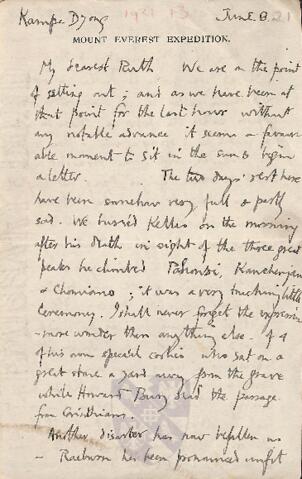 Kampa Dzong June 8 21
MOUNT EVEREST EXPEDITION.
My dearest Ruth We are on the point
of setting out; and as we have been at
that point for the last hour without
any notable advance it seems a favour-
able moment to sit in the sun & begin
a letter. The two days' rest here
have been somehow very full & partly
sad. We buried Kellas on the morning
after his death in sight of the three great
peaks he climbed Pahonri, Kanchenjau
& Chomiomo; it was a very touching little
ceremony. I shall never forget the expression
- more wonder than anything else. of 4
of his own special coolies who sat on a
great stone a yard away from the grave
while Howard Bury read the passage
from Corinthians.
Another disaster has now befallen us
- Raeburn has been pronounced unfit